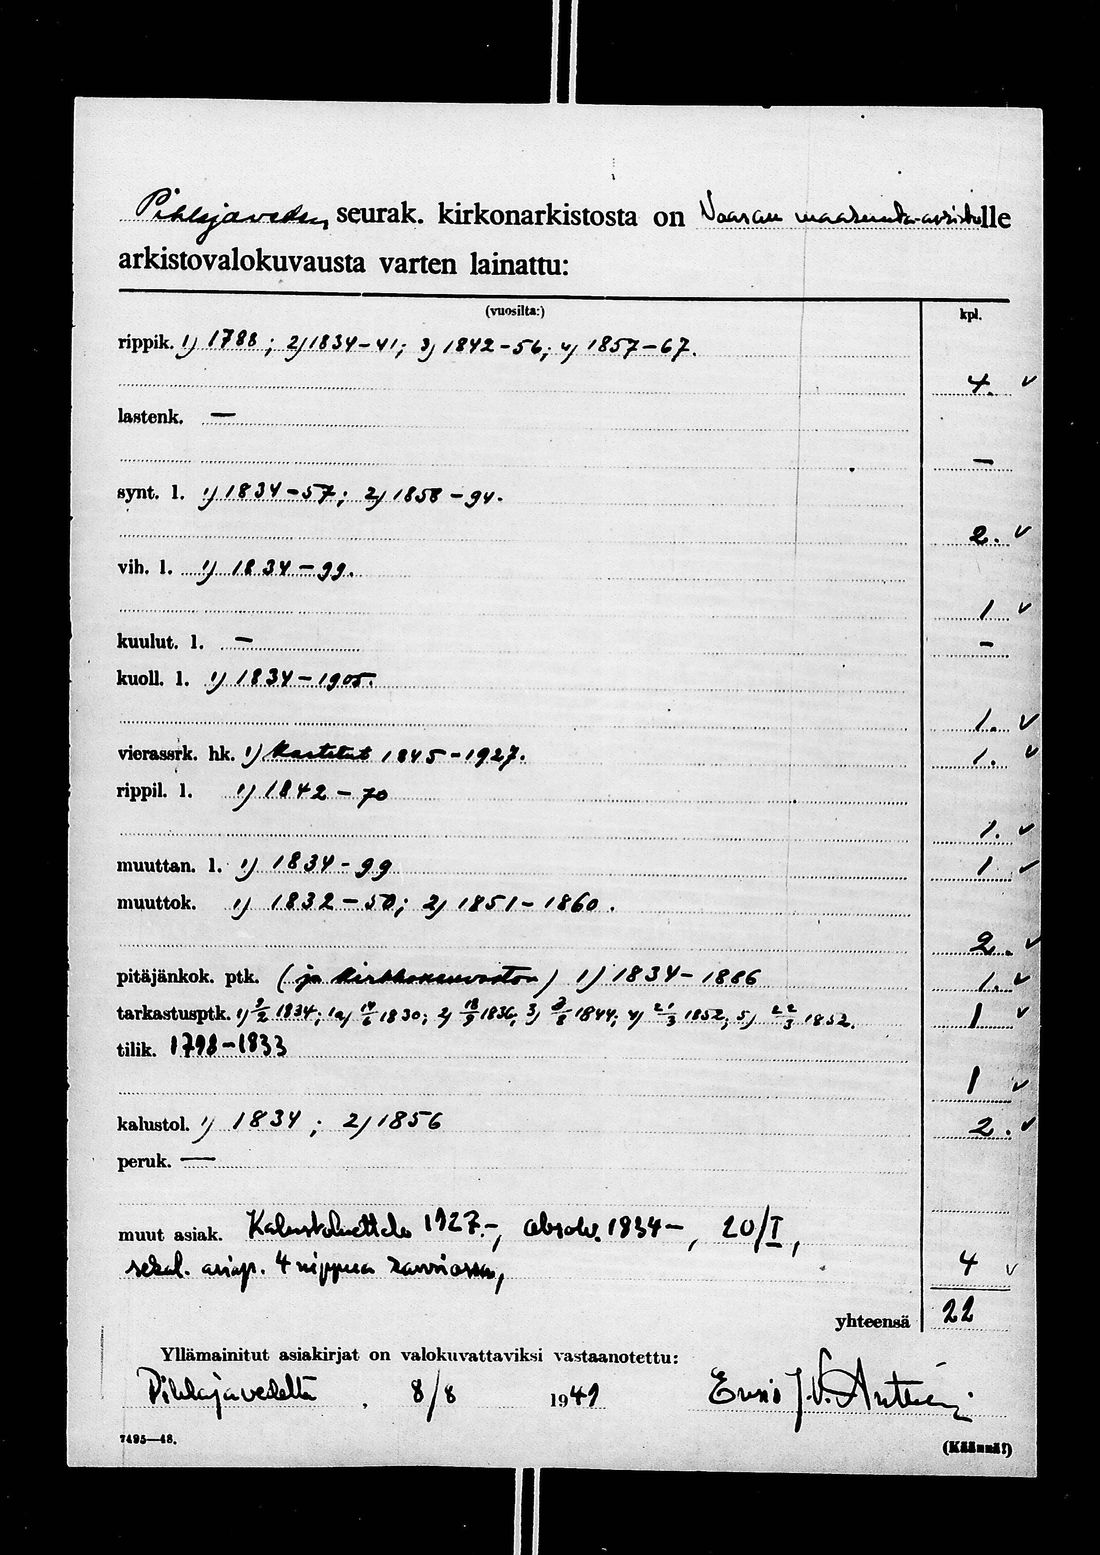 Pihlajaveden seurak. kirkonarkistosta on Vaasan maakunta-arkistolle
arkistovalokuvausta varten lainattu:
(vuosilta:) kpl.
rippik. 1) 1788; 2) 1834-41; 3) 1842-56; 4) 1857-67.
4. ✓
lastenk. —
—
synt. l. 1) 1834-57; 2) 1858-94.
2. ✓
vih. l. 1) 1834-99.
1 ✓
kuulut. l. — —
kuoll. l. 1) 1834-1905.
1. ✓
vierassrk. hk. 1) 1845-1927. 1. ✓
rippil. l. 1) 1842-70
1. ✓
muuttan. l. 1) 1834-99 1 ✓
muuttok. 1) 1832-50; 2) 1851-1860.
2. ✓
pitäjänkok. ptk. (ja kirkkoneuvoston) 1) 1834-1886 1. ✓
tarkastusptk. 1) 9/2 1834; 1a) 1830; 2) 18/9 1836; 3) 1844; 4) 21/3 1852; 5) 22/3 1852. 1 ✓
tilik. 1798-1833
1 ✓
kalustol. 1) 1834; 2) 1856 2. ✓
peruk. —
muut asiak. Kalustoluettelo 1927-, absolv. 1834-, 20/I,
sekal. asiap. 4 nippua 4 ✓
yhteensä 22
Yllämainitut asiakirjat on valokuvattaviksi vastaanotettu:
Pihlajavedeltä. 8/8 1949 Ensio J.V. Anttien
7495—48. (Käännä!)